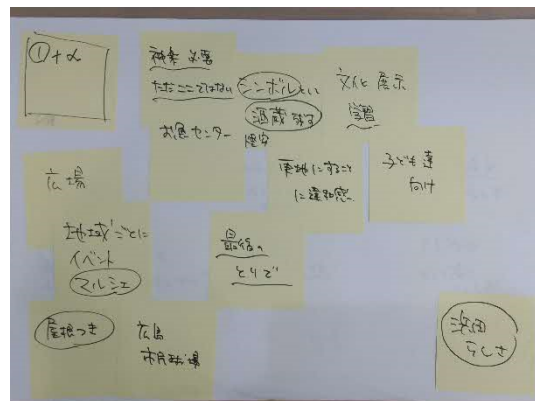 ①+α
神楽 必要
ただここではない
シンボルとい
酒蔵 残す
お魚センター
文化 展示
学習
更地にすること
に違和感
子ども達
向け
広場
地域ごとに
イベント
マルシェ
最後の
とりで
屋根つき
広島
市民球場
浜田
らしさ